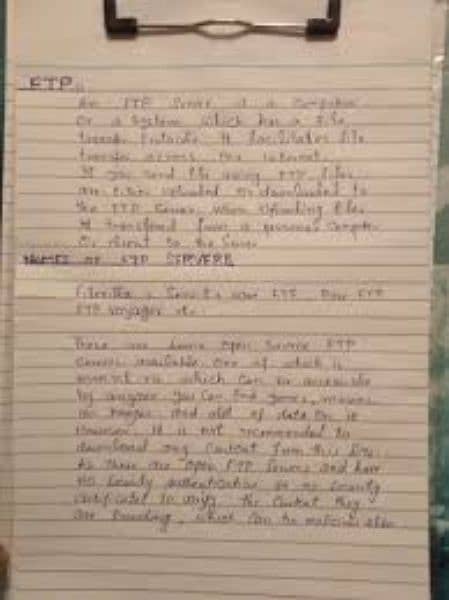 FTP
An FTP Server is a Computer
Or a System which has a File
transfer Protocol. It facilitates file
transfer across the internet.
If you send file using FTP, files
are either uploaded or downloaded to
the FTP Server, when Uploading files,
transfered from a personal Computer
Or client to the Server
NAMES OF FTP SERVERS
FTP
FTP Voyager etc.
These are Some Open Source FTP
Servers available One of which is
which Can be accessible
by anyone you Can find games, movies
and alot of data On it
However, It is not recommended to
download any Content from this Site
As these are Open FTP Servers and have
No Security authentication or no Security
Certificates to verify the Content they
are Providing, which Can be malicious also